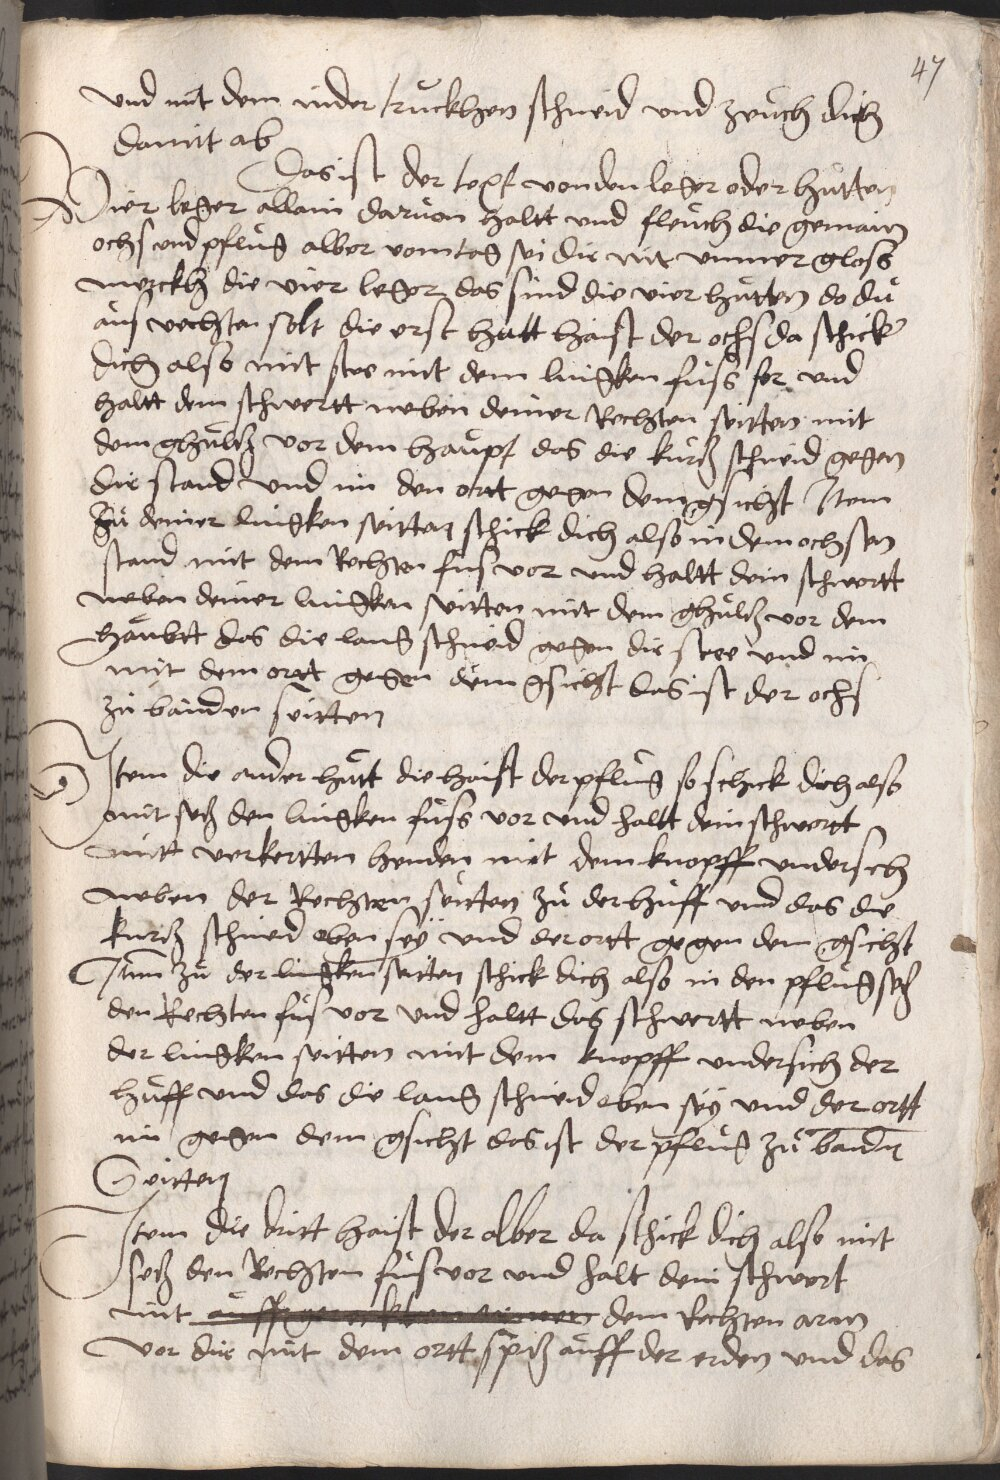 47
und mit dem inder truckhen schneid und zeuch dich
damit ab
Das ist der text von den leger oder hutten
Vier leger allain daruon haltt und fleuch die gemain
ochs und pflug alber vom tag sei dir nit unmer gloss
merckh die vier leger das sind die vier hutten do du
aus vechten solt die erst hutt haist der ochs da schick
dich also mit stee mit dem lingken fuss for und
haltt dein schwertt neben deiner Rechten seitten mit
dem ghultz vor dem haupt das die kurtz schneid gegen
dir stand und im den ortt gegen dem gsicht Item
Zu deiner lingken seitten schick dich also in den ochsen
stand mit dem Rechten fus vor und haltt dein schwertt
neben deiner lingken seitten mit dem ghultz vor dem
haubtt das die lang schneid gegen dir stee und im
mit dem ortt gegen dem gsicht das ist der ochs
zu baiden seitten
Item die ander hutt die haist der pflug so schick dich also
mit setz den lingken fuss vor und haltt dein schwertt
mitt verkertten henden mit dem knopff undersich
neben der Rechten seitten zu der huff und das die
kurtz schneid oben sey und der ortt gegen dem gsicht
Item zu der lingken seitten schick dich also in den pflug setz
den Rechten fus vor und haltt das schwertt neben
der lingken seitten mit dem knopff undersich der
huff und das die lang schneid oben sey und der ortt
im gegen dem gsicht das ist der pflug zu baider
Seitten
Item die dritt haist der alber da schick dich also mit
setz den Rechten fus vor und halt dein schwert
mit auff gerecktten armen dem Rechten arm
vor dir mit dem ortt spitz auff der erden und das